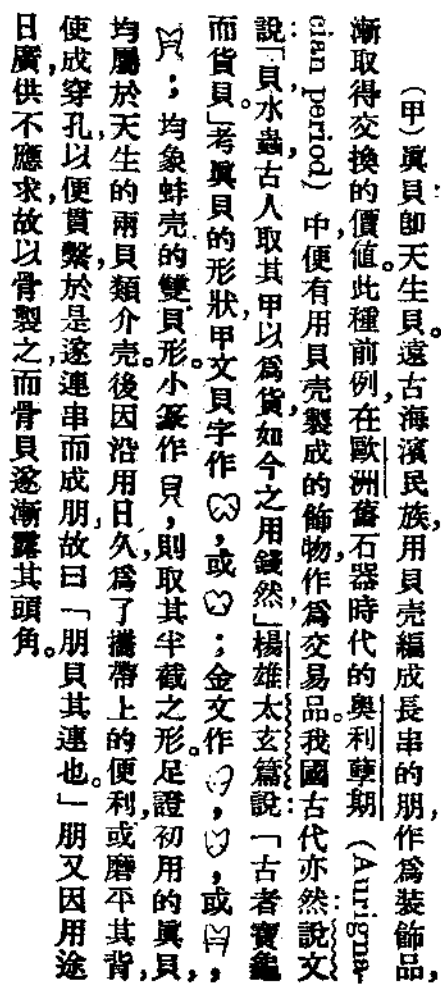 （甲）眞貝卽天生貝。遠古海濱民族，用貝壳編成長串的朋，作爲裝飾品，
漸取得交換的價値。此種前例，在歐洲舊石器時代的奧利孽期（Aurigna-
cian period）中，便有用貝壳製成的飾物，作爲交易品。我國古代亦然：說文
說：「貝，水蟲，古人取其甲以爲貨，如今之用錢然，」楊雄太玄篇說：「古者寶龜
而貨貝。」考眞貝的形狀，甲文貝字作，或；金文作，，或，
；均象蚌壳的雙貝形。小篆作，則取其半截之形。足證初用的眞貝，
均屬於天生的兩貝類介壳。後因沿用日久，爲了攜帶上的便利，或磨平其背，
使成穿孔，以便貫繫，於是遂連串而成朋，故曰「朋貝其連也。」朋又因用途
日廣，供不應求，故以骨製之，而骨貝遂漸露其頭角。